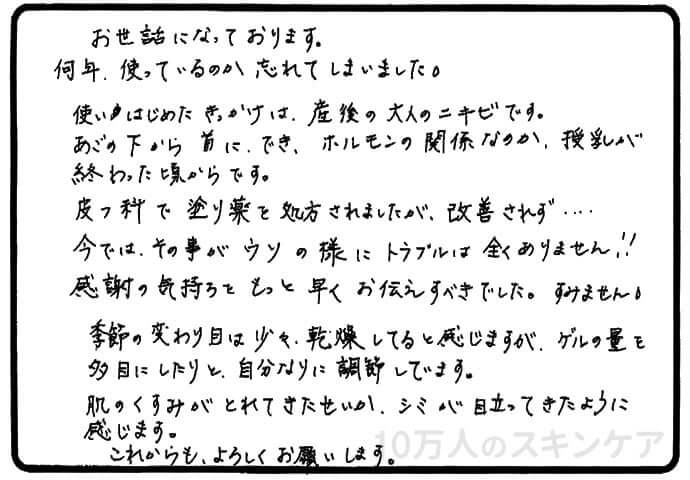 お世話になっております。
何年、使っているのか忘れてしまいました。
使いはじめたきっかけは、産後の大人のニキビです。
あごの下から首に、でき、ホルモンの関係なのか、授乳が
終わった頃からです。
皮フ科で塗り薬を処方されましたが、改善されず‥‥
今では、その事がウソの様にトラブルは全くありません!!
感謝の気持ちをもっと早くお伝えすべきでした。すみません。
季節の変わり目は少々、乾燥してると感じますが、ゲルの量を
多目にしたりと、自分なりに調節しています。
肌のくすみがとれてきたせいか、シミが目立ってきたように
感じます。
これからも、よろしくお願いします。
10万人のスキンケア